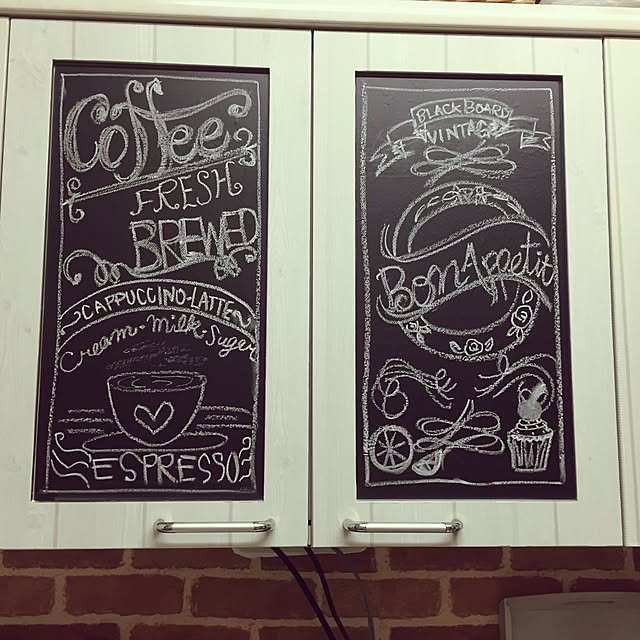 Coffee
FRESH
BREWED
CAPPUCCINO-LATTE
Cream-Milk-Sugar
ESPRESSO
BLACKBOARD
VINTAGE
Bon Appetit